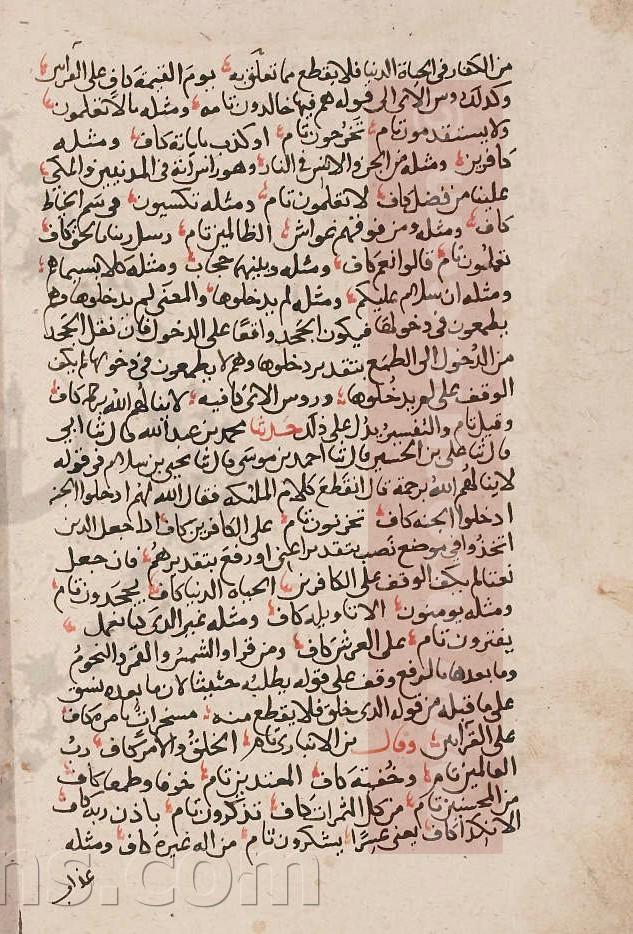 من الكفار في الحياة الدنيا فلا يقطع مما تعلق به يوم القيمة كاف على القراتين
وكذلك روس الاى الى قوله هم فيها خالدون تامه ومثله مالا تعلمون
ولا يستقدمون تام تخرجون تام او كذب باياته كاف ومثله
كافرين ومثله من الجن والانس في النار وهو راس اية في المدنيين والمكي
علينا من فضل كاف لا تعلمون تام ومثله تكسبون في سم الخياط
كاف ومثله ومن فوقهم غواش الظالمين تام رسل ربنا بالحق كاف
تعملون تام قالوا نعم كاف ومثله وبينهما حجاب ومثله كلا بسيماهم
ومثله ان سلام عليكم ومثله لم يدخلوها والمعنى لم يدخلوها وهم
يطمعون في دخولها فيكون الجحد واقعا على الدخول فان نقل الجحد
من الدخول الى الطمع بتقدير دخلوها وهم لا يطمعون في دخولها لم يكن
الوقف على لم يدخلوها وروس الاى كافيه لا ينالهم الله برحمة كاف
وقيل تام والتفسير يدل على ذلك حدثنا محمد بن عبد الله قال ثنا ابي
قال ثنا علي بن الحسين قال ثنا احمد بن موسى قال ثنا يحيى بن سلام في قوله
لا ينالهم الله برحمة قال انقطع كلام الملئكة فقال الله لهم ادخلوا الجنه
ادخلوا الجنه كاف تحزنون تام على الكافرين كاف اذا جعل الذين
اتخذوا في موضع نصب بتقدير اعني او رفع بتقدير هم فان جعل
نعتا لم يكف الوقف على الكافرين الحياة الدنيا كاف يجحدون تام
ومثله يومنون الا تاويله كاف ومثله غير الذي كنا نعمل
يفترون تام على العرش كاف ومن قرا والشمس والقمر والنجوم
وما بعدها بالرفع وقف على قوله يطلبه حثيثا لان ما بعده نسق
على ما قبله من قوله الذي خلق فلا يقطع منه مسخرات بامره كاف
على القراتين وقال بن الانباري تام الخلق والامر كاف رب
العالمين تام وخفية كاف المعتدين تام خوفا وطمعا كاف
من المحسنين تام من كل الثمرات كاف تذكرون تام باذن ربه كاف
الا نكدا كاف يعني عسرا يشكرون تام من اله غيره كاف ومثله
عذاب
ns.com